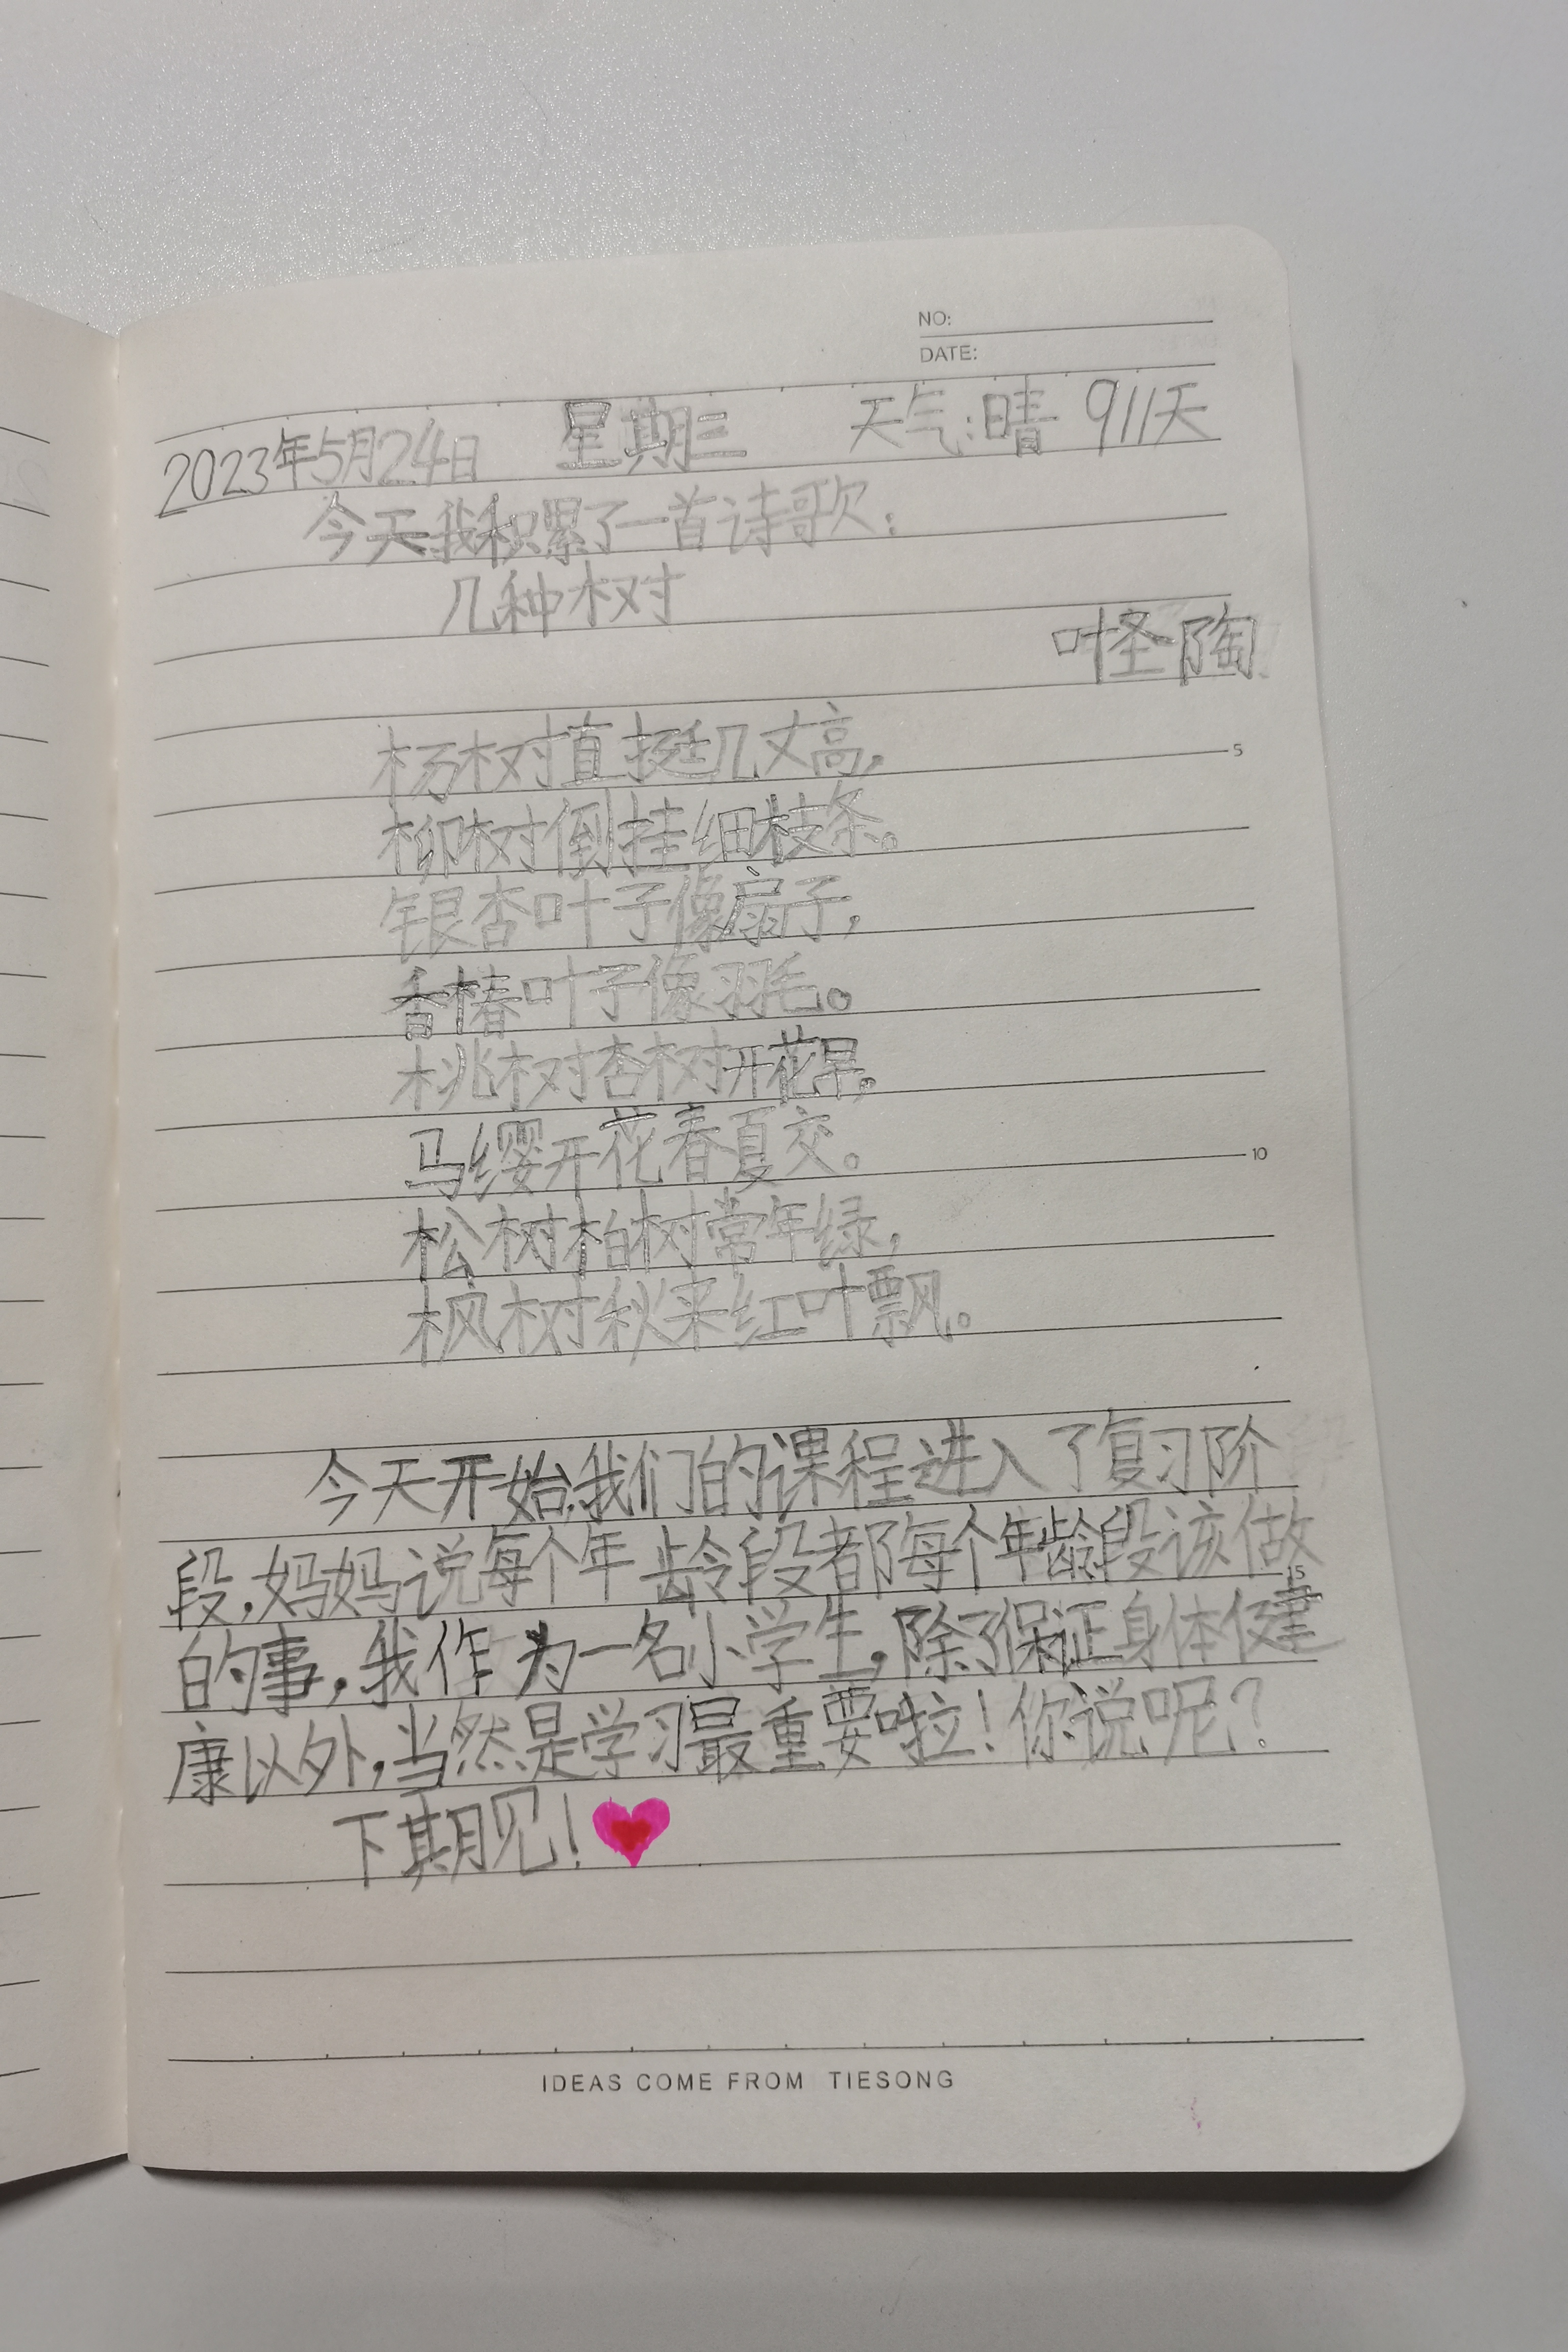 NO:
DATE:
2023年5月24日 星期三 天气:晴 911天
今天我积累了一首诗歌:
几种树
叶圣陶
杨树直挺几丈高,
5
柳树倒挂细枝条。
银杏叶子像扇子,
香椿叶子像羽毛。
桃树杏树开花早,
马缨开花春夏交。
10
松树柏树常年绿,
枫树秋来红叶飘。
今天开始,我们的课程进入了复习阶
段,妈妈说每个年龄段都有每个年龄段该做
15
的事,我作为一名小学生,除了保证身体健
康以外,当然是学习最重要啦!你说呢?
下期见!
IDEAS COME FROM TIESONG